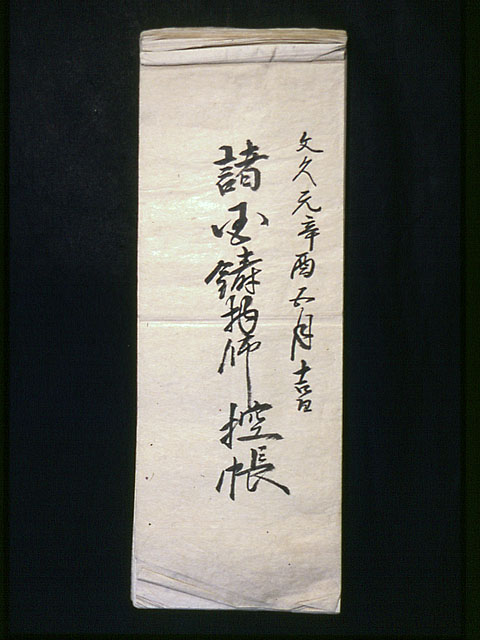 文久元辛酉五月吉日
諸国鋳物師控帳